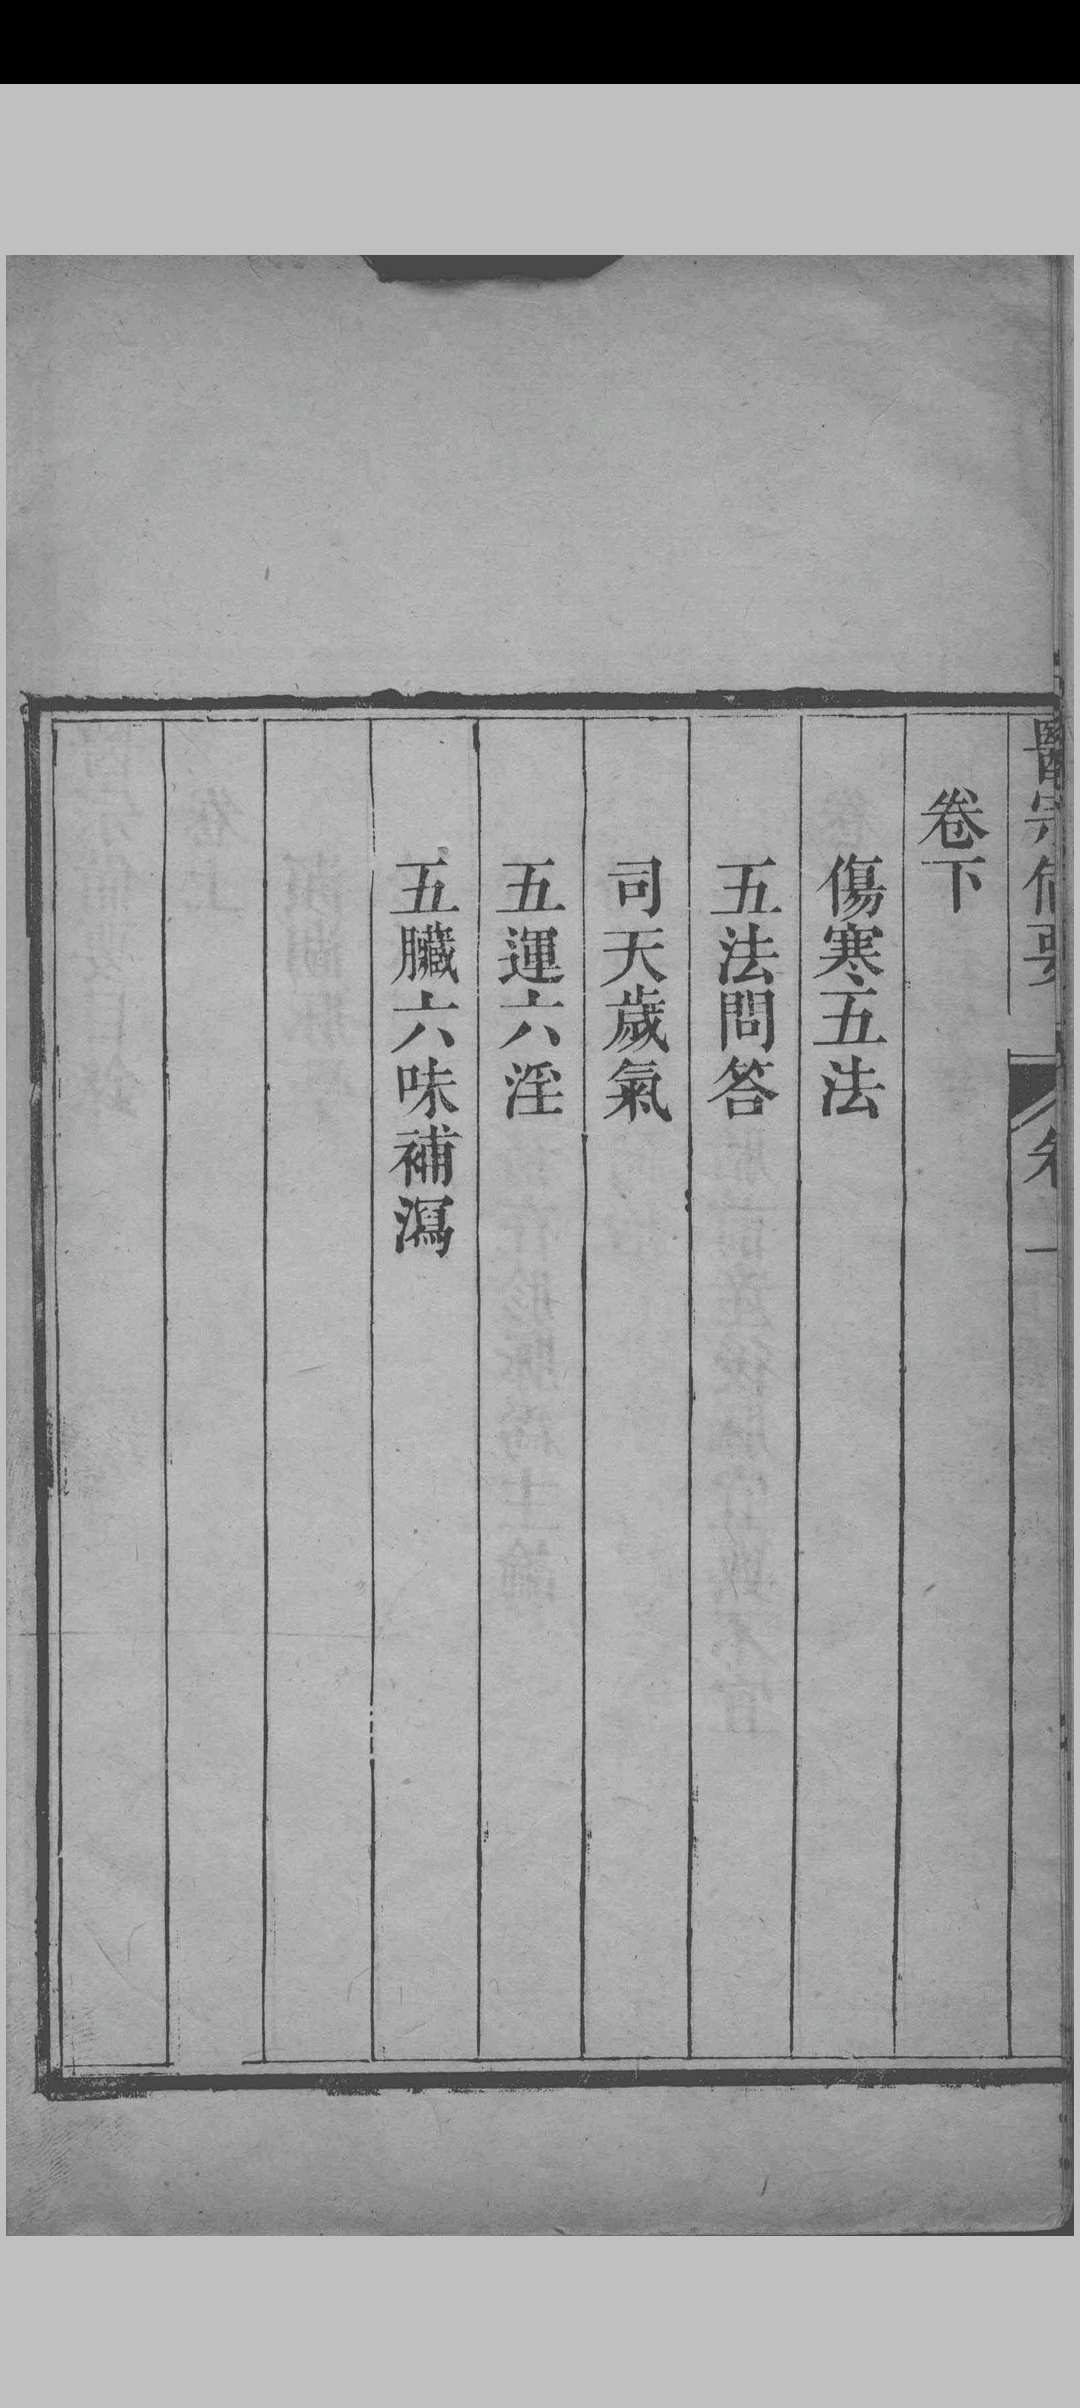 醫宗備要
卷
一
卷下
傷寒五法
五法問答
司天歲氣
五運六淫
五臟六味補瀉